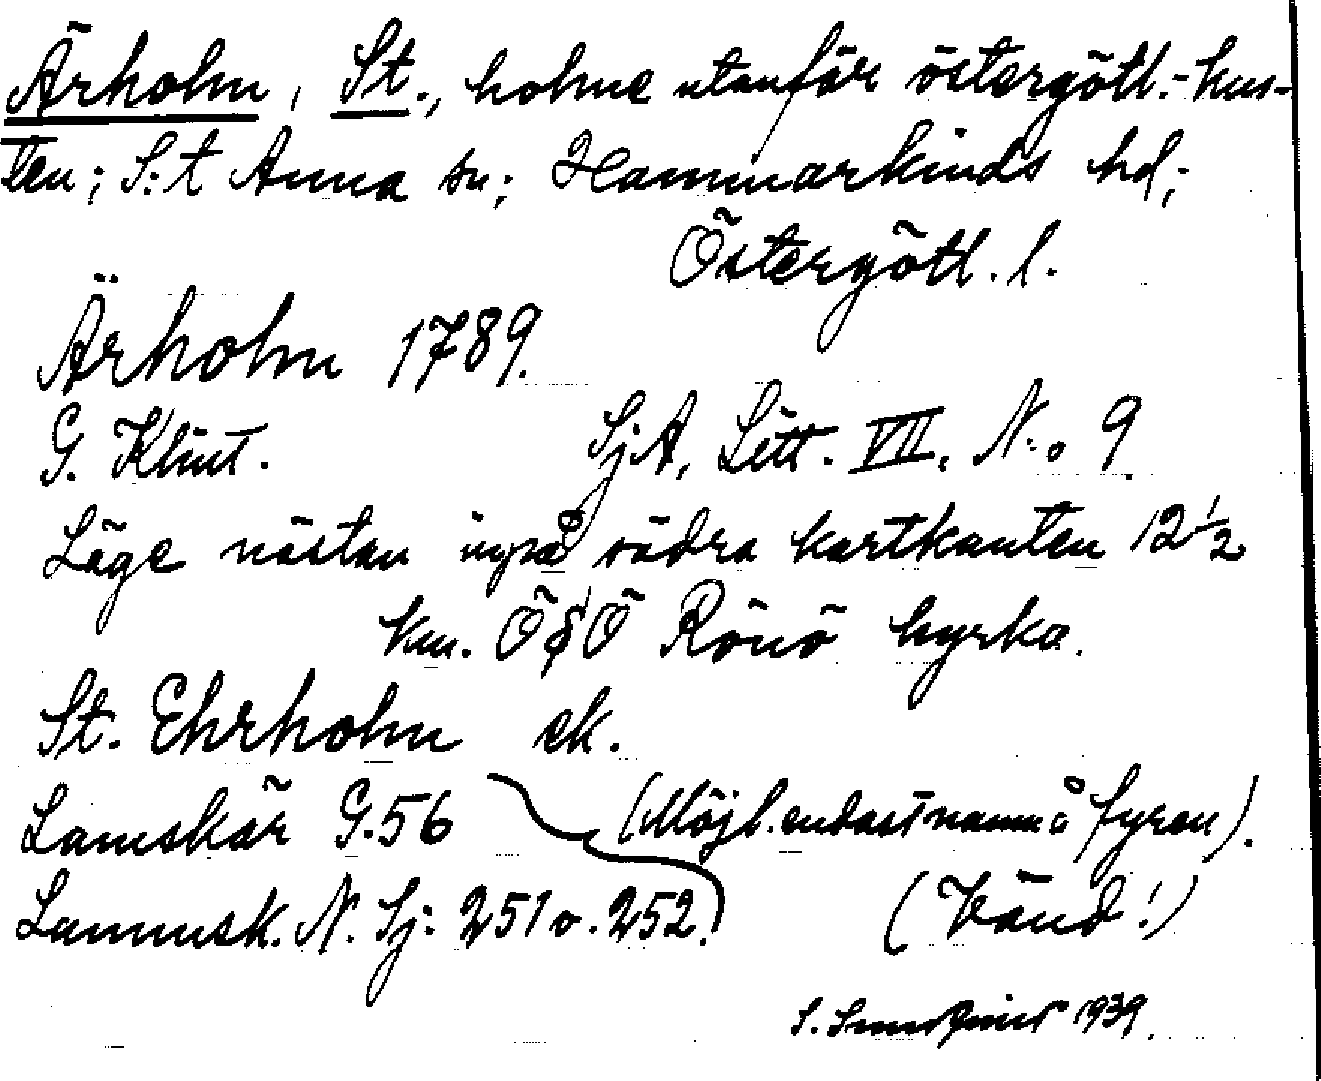 Ärholm, St., holme utanför östergötl.-kus-
ten; S:t Anna sn; Hammarkinds hd;
Östergötl. l.
Ärholm 1789.
G. Klint. SjA, Litt. VII. N:o 9.
Läge nästan inpå södra kartkanten 12½
km. ÖSÖ Rönö kyrka.
St. Ehrholm ek.
Lamskär G.56 (Möjl. endast namn å fyren).
Lammsk. N. Sj: 251 o. 252. (Vänd!)
S. 1939.